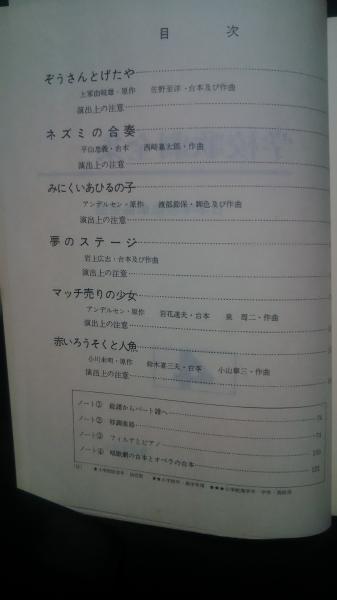 目 次
ぞうさんとげたや
佐野至洋・台本及び作曲
演出上の注意
ネズミの合奏
平山忠義・台本 西崎嘉太郎・作曲
演出上の注意
みにくいあひるの子
アンデルセン・原作 渡部節保・脚色及び作曲
演出上の注意
夢のステージ
岩上広志・台本及び作曲
演出上の注意
マッチ売りの少女
アンデルセン・原作 岩花達夫・台本 泉 周二・作曲
演出上の注意
赤いろうそくと人魚
小川未明・原作 鈴木喜三夫・台本 小山章三・作曲
演出上の注意
ノート① 総譜からパート譜へ
ノート② 移調楽器
ノート③ フィルナとピアノ
ノート④ 唱歌劇の台本とオペラの台本